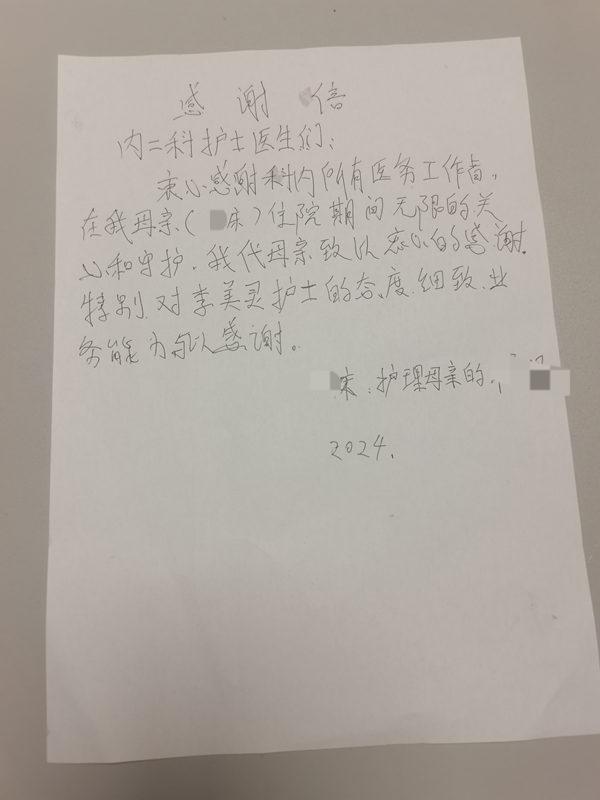 感谢信
内二科护士医生们:
衷心感谢科内所有医务工作者,
在我母亲(床)住院期间无限的关
心和守护.我代母亲致以衷心的感谢.
特别对李美灵护士的态度.细致.业
务能力予以感谢。
床.护理母亲的.
2024.